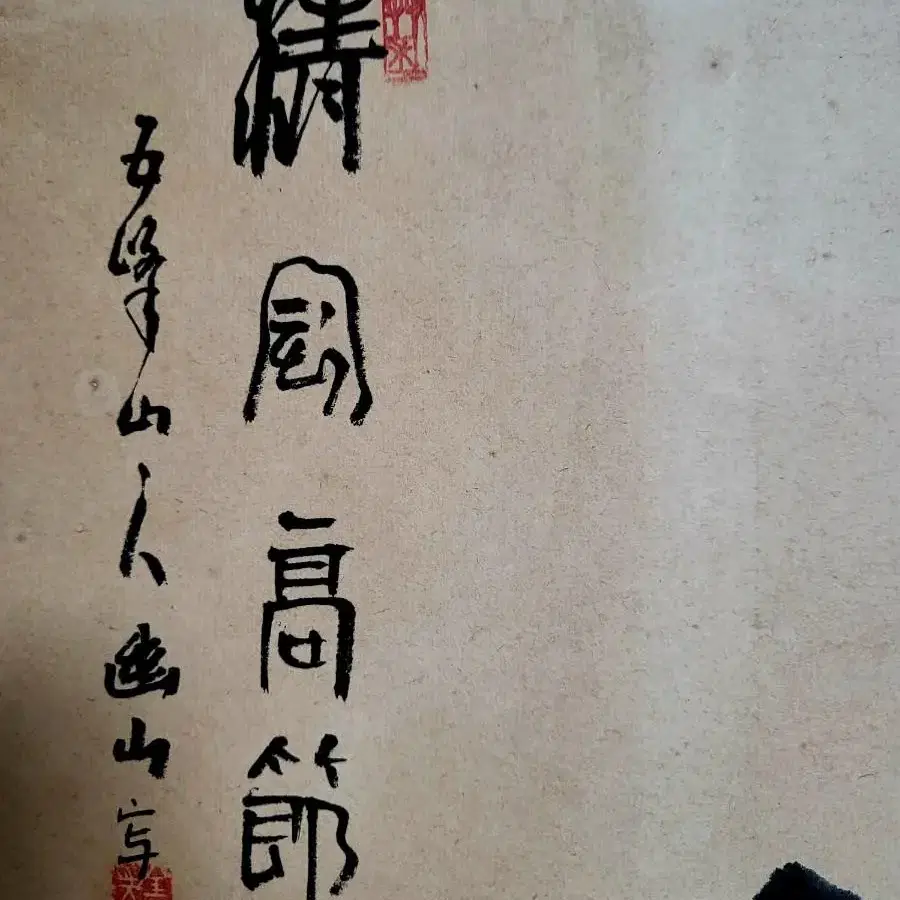 清風高節
五峰山人幽山写